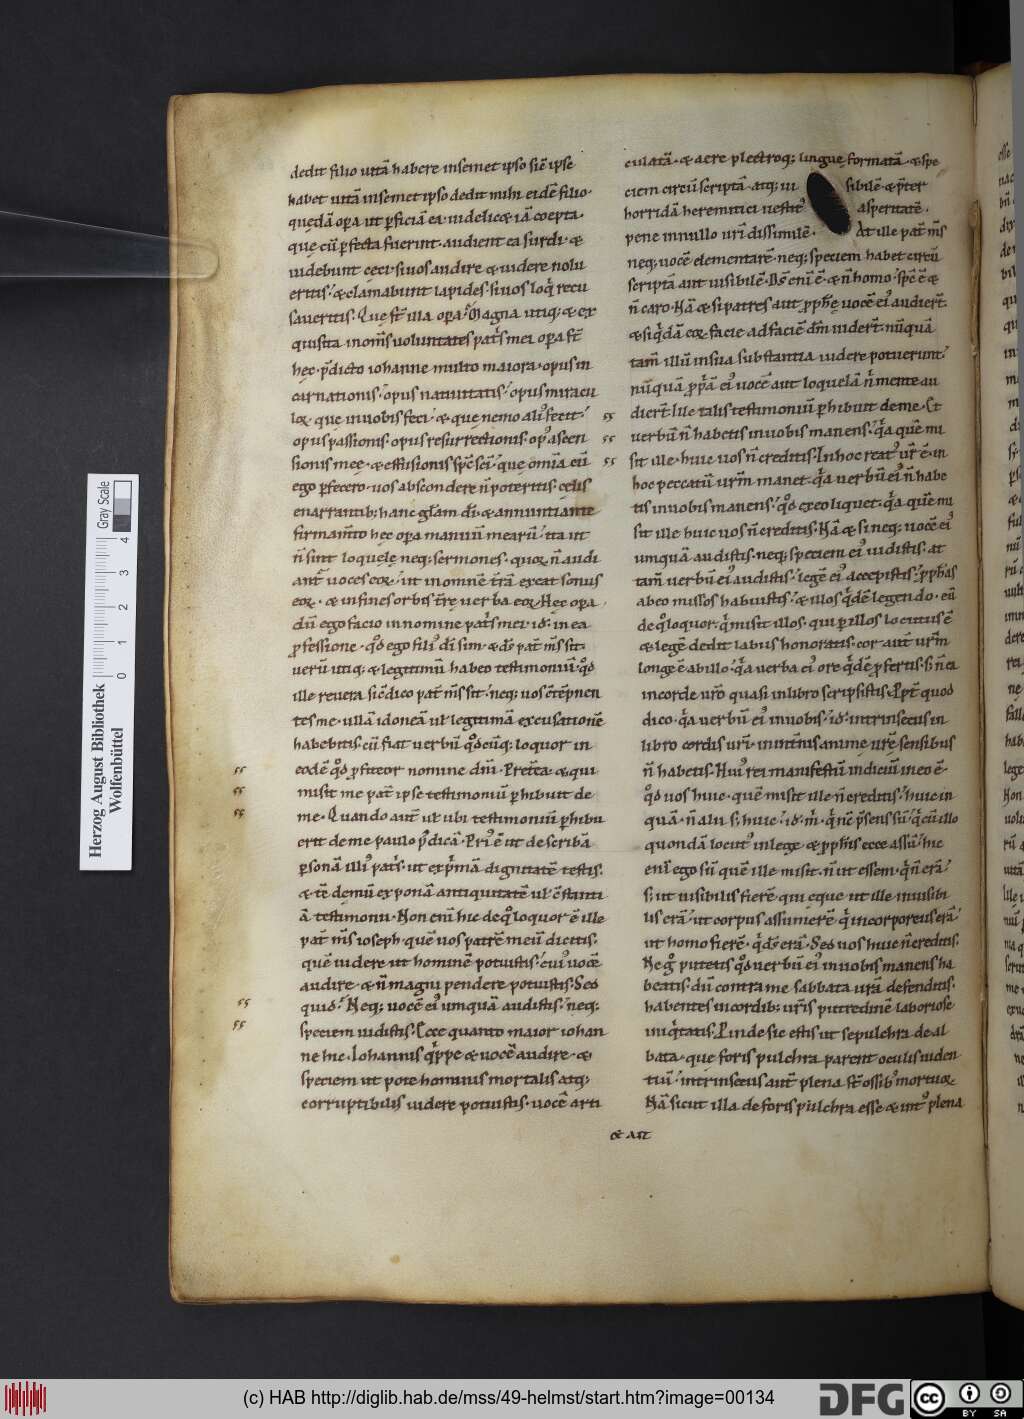 dedit filio uitā habere insemet ipso sic̄ ipse
habet uitā insemet ipso dedit mihi eidē filio·
quędā oꝑa ut ꝑficiā ea· uidelicet iā coepta·
quę cū ꝑfecta fuerint· audient ea surdi· &
uidebunt ceci· si uos audire & uidere nolu
eritis· & clamabunt lapides· si uos loq̇ recu
saueritis· Quę st̄ illa oꝑa· Magna utiq;· & ex
quisita in om̄s uoluntates pat̄s mei oꝑa st̄
hęc· p̄dicto iohanne multo maiora· opus in
carnationis· opus natiuitatis· opus miracu
loꝝ· quę in uobis feci· & quę nemo ali᷒ fecit·
opus passionis· opus resurrectionis· op᷒ ascen
sionis meę· & effusionis sp̄c sc̄i· quę om̄ia cū
ego ꝑfecero· uos abscondere n̄ poteritis· celis
enarrantib; hanc gl̄am dī· & annuntiante
firmam̄to hęc oꝑa manuū mearū· ita ut
n̄ sint loquelę neq; sermones· quoꝝ n̄ audi
ant᷑ uoces eoꝝ· ut in omnē t̄rā exeat sonus
eoꝝ· & in fines orbis t̄rę uerba eoꝝ· Hęc oꝑa
dū ego facio in nomine pat̄s mei· id· in ea
ꝓfessione· qd̄ ego fili᷒ dī sim· & ds̄ pat̄ m̄s sit·
uerū utiq; & legitimū habeo testimoniū· qd̄
ille reuera sic̄ dico pat̄ m̄s sit· neq; uos c̄tēpnen
tes me· ullā idoneā uł legitimā excusationē
habebitis· cū fiat uerbū qd̄cūq; loquor in
eodē qd̄ ꝓfiteor nomine dn̄i· Pret̄ea· & qui
misit me pat̄ ipse testimoniū ꝑhibuit de
me· Quando aut̄ uł ubi testimoniū ꝑhibu
erit de me paulo p᷒ dicā· Pri᷒ ē ut describā
ꝑsonā illi᷒ pat̄s· ut exp̄mā dignitatē testis·
& t̄c demū exponā antiquitatē uł c̄stanti
ā testimonii· Non enī hic de q̊ loquor ē ille
pat̄ m̄s ioseph· quē uos patrē meū dicitis·
quē uidere ut hominē potuistis· cui᷒ uocē
audire· & n̄ magni pendere potuistis· Sed
quid· Neq; uocē ei᷒ umquā audistis· neq;
speciem uidistis· Ecce quanto maior iohan
ne hic· Iohannis q̇ppe & uocē audire· &
speciem ut pote hominis mortalis atq;
corruptibilis uidere potuistis· uocē arti
culatā· & aere plectroq; linguę formatā· & spe
ciem circūscriptā· atq; ui sibilē· & p̄ter
horridā heremitici uestit᷒ asperitatē·
pene in nullo ur̄i dissimilē· At ille pat̄ m̄s
neq; uocē elementarē· neq; speciem habet circū
scriptā aut uisibilē· Ds̄ enī ē· & n̄ homo· sp̄c ē &
n̄ caro· Nā & si patres aut ꝓph̄ę uocē ei᷒ audier̄t·
& si q̇dā eoꝝ facie ad faciē dn̄m uider̄t· nūquā
tam̄ illū in sua substantia uidere potuerunt·
nūquā ꝓp̄ā ei᷒ uocē aut loquelā n̄ mente au
dier̄t· Ille talis testimoniū ꝑhibuit de me· Et
uerbū n̄ habetis in uobis manens· q̇a quē mi
sit ille· huic uos n̄ creditis· In hoc reat᷒ ur̄ ē· in
hoc peccatū ur̄m manet· q̇a uerbū ei᷒ n̄ habe
tis in uobis manens· qd̄ ex eo liquet· q̇a quē mi
sit ille huic uos n̄ creditis· Nā & si neq; uocē ei᷒
umquā audistis· neq; speciem ei᷒ uidistis· at
tam̄ uerbū ei᷒ audistis· legē ei᷒ accepistis· ꝓph̄as
ab eo missos habuistis· & illos q̇dē legendo· cū
de q̊ loquor· q̇ misit illos· qui ꝑ illos locutus ē
& legē dedit labiis honoratis· cor aut̄ ur̄m
longe ē ab illo· q̇a uerba ei᷒ ore q̇dē ꝓfertis· s; n̄ ea
in corde ur̄o quasi in libro scripsistis· Ppt̄ quod
dico· q̇a uerbū ei᷒ in uobis· id· intrinsecus in
libro cordis ur̄i· in int̄nis animę ur̄ę sensibus
n̄ habetis· Hui᷒ rei manifestū indiciū in eo ē·
qd̄ uos huic· quē misit ille n̄ creditis· huic in
quā· n̄ alii s; huic· id· m̄· q̇ n̄c p̄sens sū· q̇ cū illo
quondā locut᷒ in lege & ꝓph̄is ecce assū· hic
enī ego sū quē ille misit· n̄ ut essem· q̇ n̄ erā·
s; ut uisibilis fierē· qui ęque ut ille inuisibi
lis erā· ut corpus assumerē· q̇ incorporeus erā·
ut homo fierē· q̇ ds̄ erā· Sed uos huic n̄ creditis·
Ne g̊ putetis qd̄ uerbū ei᷒ in uobis manens ha
beatis· dū contra me sabbata ur̄a defenditis·
habentes in cordib; ur̄is putredinē laboriosę
iniq̇tatis· Proinde sic estis ut sepulchra deal
bata· quę foris pulchra parent oculis uiden
tiū· intrinsecus aut̄ plena st̄ ossib᷒ mortuoꝝ·
Nā sicut illa de foris pulchra esse & int᷒ plena
& ast
Herzog August Bibliothek
Wolfenbüttel
Gray Scale
0 1 2 3 4
(c) HAB http://diglib.hab.de/mss/49-helmst/start.htm?image=00134
DFG
cc BY SA